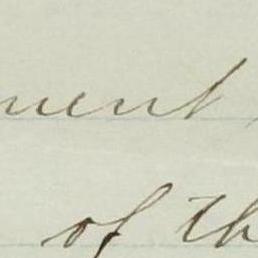 ment
of th